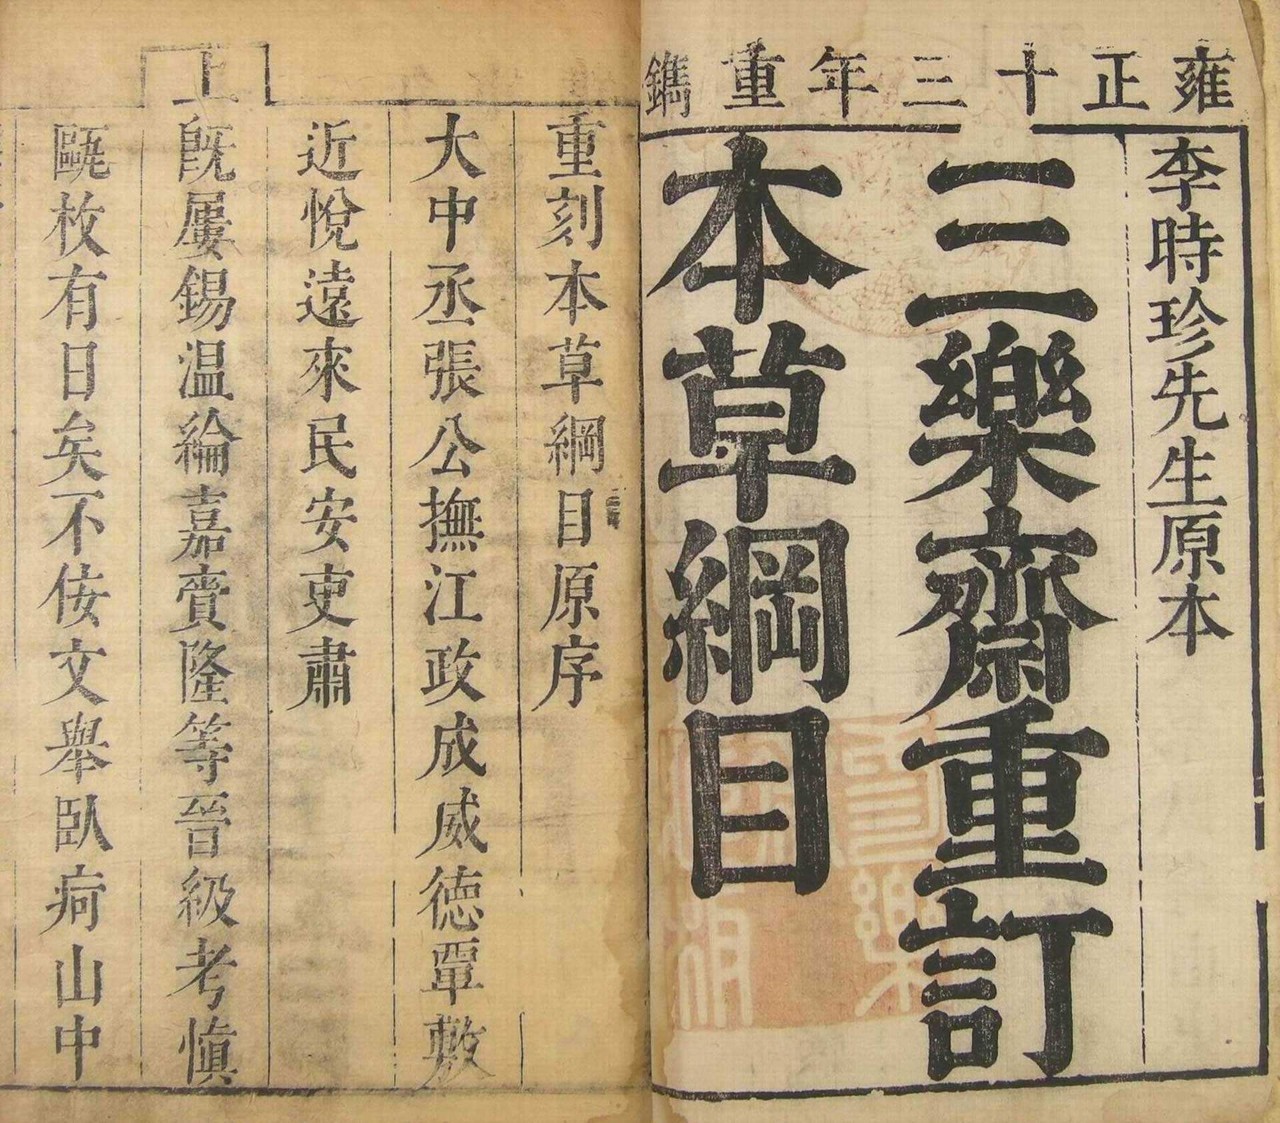 雍正十三年重鐫
李時珍先生原本
三樂齋重訂
本草綱目
重刻本草綱目原序
大中丞張公撫江政成威德覃敷
近悅遠來民安吏肅
上旣屢錫温綸嘉賚隆等晉級考慎
甌枚有日矣不佞文舉臥疴山中